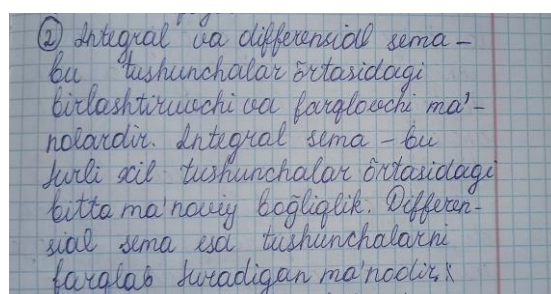 ② Integral va differensial sema –
bu tushunchalar o'rtasidagi
birlashtiruvchi va farqlovchi ma'-
nolardir. Integral sema – bu
turli xil tushunchalar o'rtasidagi
bitta ma'noviy bog'liqlik. Differen-
sial sema esa tushunchalarni
farqlab turadigan ma'nodir.